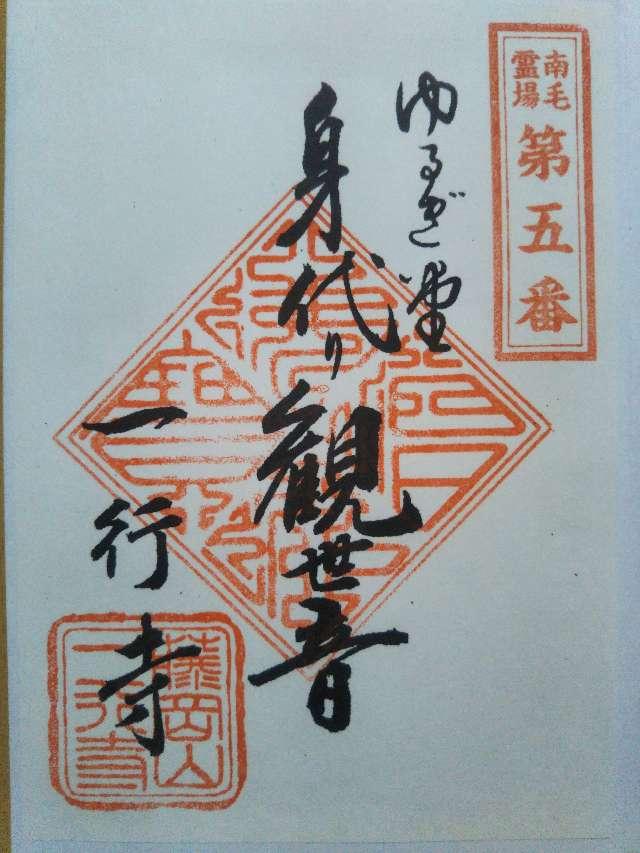 南毛
霊場
第五番
ゆるぎ堂
身代り観世音
一行寺
藤岡山
一行寺